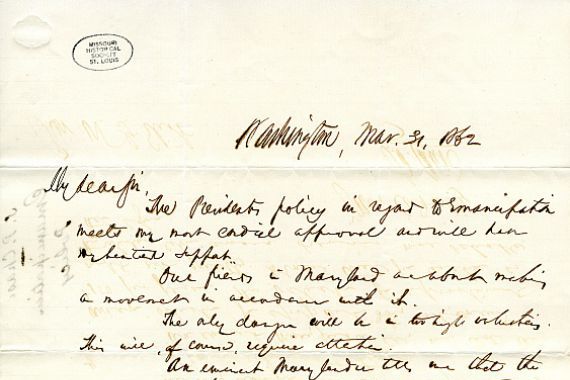 MISSOURI
HISTORICAL
SOCIETY
ST. LOUIS
Washington, Mar. 31, 1862
My dear Sir,
The Presidents policy in regard to Emancipation
meets my most cordial approval and will have
my heartiest support.
Our friends in Maryland are about making
a movement in accordance with it.
The only danger will be in too high valuation.
This will, of course, require attention.
An eminent Marylander tells me that the